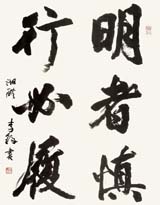 明者慎
行必履
湘醴 李铎书